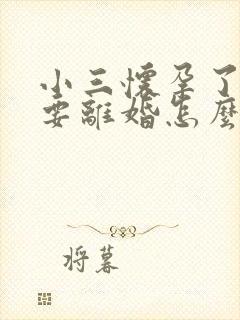 小三懷孕了
要離婚怎麼
將暮